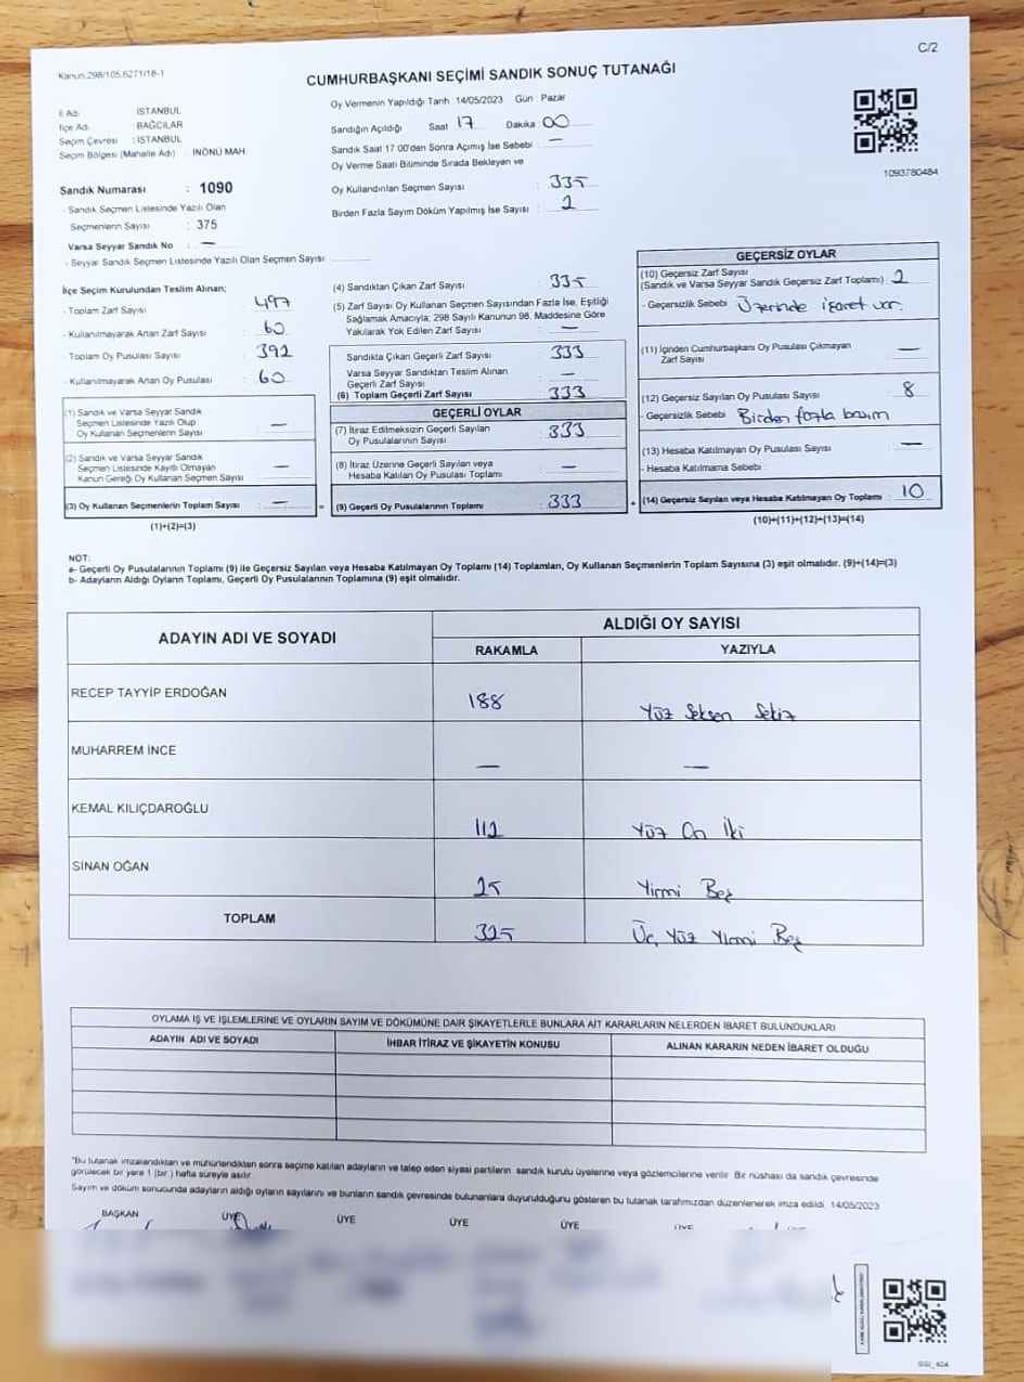 C/2
Kanun.298/105.6271/18-1
CUMHURBAŞKANI SEÇİMİ SANDIK SONUÇ TUTANAĞI
İl Adı : İSTANBUL
İlçe Adı : BAĞCILAR
Seçim Çevresi : İSTANBUL
Seçim Bölgesi (Mahalle Adı) İNÖNÜ MAH.
Sandık Numarası : 1090
- Sandık Seçmen Listesinde Yazılı Olan
Seçmenlerin Sayısı : 375
Varsa Seyyar Sandık No : —
- Seyyar Sandık Seçmen Listesinde Yazılı Olan Seçmen Sayısı
Oy Vermenin Yapıldığı Tarih 14/05/2023 Gün : Pazar
Sandığın Açıldığı Saat 17 Dakika 00
Sandık Saat 17:00'den Sonra Açımış İse Sebebi : —
Oy Verme Saati Bitiminde Sırada Bekleyen ve
Oy Kullandırılan Seçmen Sayısı : 335
Birden Fazla Sayım Döküm Yapılmış İse Sayısı : 2
1093780484
İlçe Seçim Kurulundan Teslim Alınan;
- Toplam Zarf Sayısı : 497
- Kullanılmayarak Artan Zarf Sayısı : 60
- Toplam Oy Pusulası Sayısı : 392
- Kullanılmayarak Artan Oy Pusulası : 60
(1) Sandık ve Varsa Seyyar Sandık
Seçmen Listesinde Yazılı Olup
Oy Kullanan Seçmenlerin Sayısı : —
(2) Sandık ve Varsa Seyyar Sandık
Seçmen Listesinde Kayıtlı Olmayan
Kanun Gereği Oy Kullanan Seçmen Sayısı : —
(3) Oy Kullanan Seçmenlerin Toplam Sayısı : —
(1)+(2)=(3)
(4) Sandıktan Çıkan Zarf Sayısı : 335
(5) Zarf Sayısı Oy Kullanan Seçmen Sayısından Fazla İse, Eşitliği
Sağlamak Amacıyla; 298 Sayılı Kanunun 98. Maddesine Göre
Yakılarak Yok Edilen Zarf Sayısı : —
Sandıkta Çıkan Geçerli Zarf Sayısı : 333
Varsa Seyyar Sandıktan Teslim Alınan
Geçerli Zarf Sayısı : —
(6) Toplam Geçerli Zarf Sayısı : 333
GEÇERLİ OYLAR
(7) İtiraz Edilmeksizin Geçerli Sayılan
Oy Pusulalarının Sayısı : 333
(8) İtiraz Üzerine Geçerli Sayılan veya
Hesaba Katılan Oy Pusulası Toplamı : —
= (9) Geçerli Oy Pusulalarının Toplamı : 333
GEÇERSİZ OYLAR
(10) Geçersiz Zarf Sayısı
(Sandık ve Varsa Seyyar Sandık Geçersiz Zarf Toplamı) 2
- Geçersizlik Sebebi : Üzerinde işaret var.
(11) İçinden Cumhurbaşkanı Oy Pusulası Çıkmayan
Zarf Sayısı —
(12) Geçersiz Sayılan Oy Pusulası Sayısı : 8
- Geçersizlik Sebebi : Birden fazla basım
(13) Hesaba Katılmayan Oy Pusulası Sayısı : —
- Hesaba Katılmama Sebebi
+ (14) Geçersiz Sayılan veya Hesaba Katılmayan Oy Toplamı : 10
(10)+(11)+(12)+(13)=(14)
NOT:
a- Geçerli Oy Pusulalarının Toplamı (9) ile Geçersiz Sayılan veya Hesaba Katılmayan Oy Toplamı (14) Toplamları, Oy Kullanan Seçmenlerin Toplam Sayısına (3) eşit olmalıdır. (9)+(14)=(3)
b- Adayların Aldığı Oyların Toplamı, Geçerli Oy Pusulalarının Toplamına (9) eşit olmalıdır.
ADAYIN ADI VE SOYADI ALDIĞI OY SAYISI
RAKAMLA YAZIYLA
RECEP TAYYİP ERDOĞAN 188 Yüz Seksen Sekiz
MUHARREM İNCE — —
KEMAL KILIÇDAROĞLU 112 Yüz On İki
SİNAN OĞAN 25 Yirmi Beş
TOPLAM 325 Üç Yüz Yirmi Beş
OYLAMA İŞ VE İŞLEMLERİNE VE OYLARIN SAYIM VE DÖKÜMÜNE DAİR ŞİKAYETLERLE BUNLARA AİT KARARLARIN NELERDEN İBARET BULUNDUKLARI
ADAYIN ADI VE SOYADI İHBAR İTİRAZ VE ŞİKAYETİN KONUSU ALINAN KARARIN NEDEN İBARET OLDUĞU
"Bu tutanak imzalandıktan ve mühürlendikten sonra seçime katılan adayların ve talep eden siyasi partilerin sandık kurulu üyelerine veya gözlemcilerine verilir. Bir nüshası da sandık çevresinde
görülecek bir yere 1 (bir ) hafta süreyle asılır.
Sayım ve döküm sonucunda adayların aldığı oyların sayılarını ve bunların sandık çevresinde bulunanlara duyurulduğunu gösteren bu tutanak tarafımızdan düzenlenerek imza edildi. 14/05/2023
BAŞKAN ÜYE ÜYE ÜYE ÜYE ÜYE